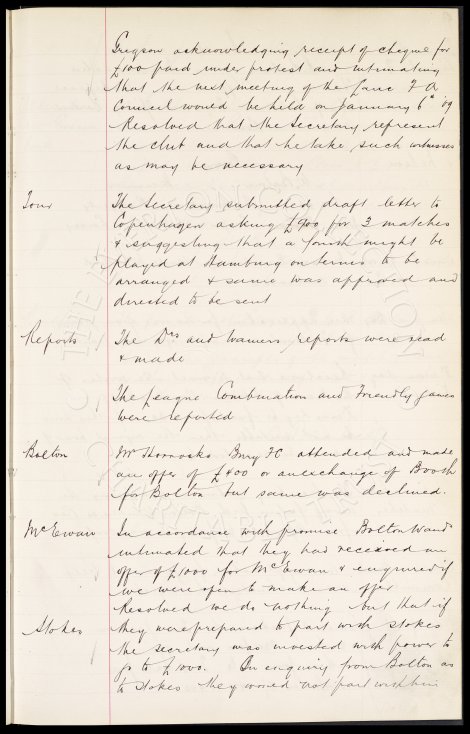 Gregson acknowledging receipt of cheque for
£100 paid under protest and intimating
that the next meeting of the Lanc F A
Council would be held on January 6th '09
Resolved that the Secretary represent
the club and that he take such witnesses
as may be necessary
Tour
The Secretary submitted draft letter to
Copenhagen asking for 3 matches
& suggesting that a fourth might be
played at Hamburg on terms to be
arranged & same was approved and
directed to be sent
Reports
The Drs and trainers reports were read
& made
The League Combination and Friendly games
were reported
Bolton
Mr Horrocks Bury FC attended and made
an offer of £400 or an exchange of Booth
for Bolton but same was declined.
McEwan
In accordance with promise Bolton Wand
intimated that they had received an
offer of £1000 for McEwan & enquired if
we were open to make an offer
Resolved we do nothing but that if
Stokes
they were prepared to part with Stokes
the secretary was invested with power to
go to £1000. On enquiry from Bolton as
to Stokes they would not part with him